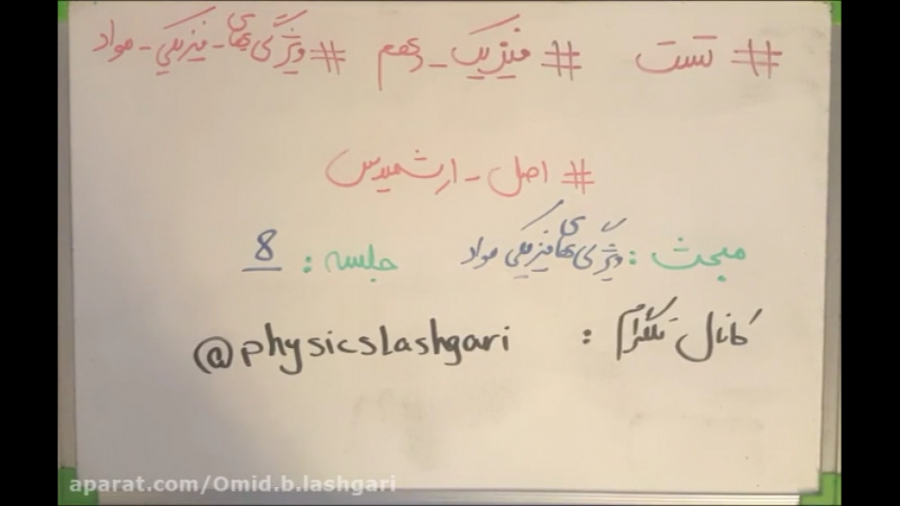 # تست # فیزیک_دهم # ویژگی‌های_فیزیکی_مواد
# اصل_ارشمیدس
مبحث : ویژگی‌های فیزیکی مواد جلسه : 8
کانال تلگرام : @physicslashgari
aparat.com/Omid.b.lashgari